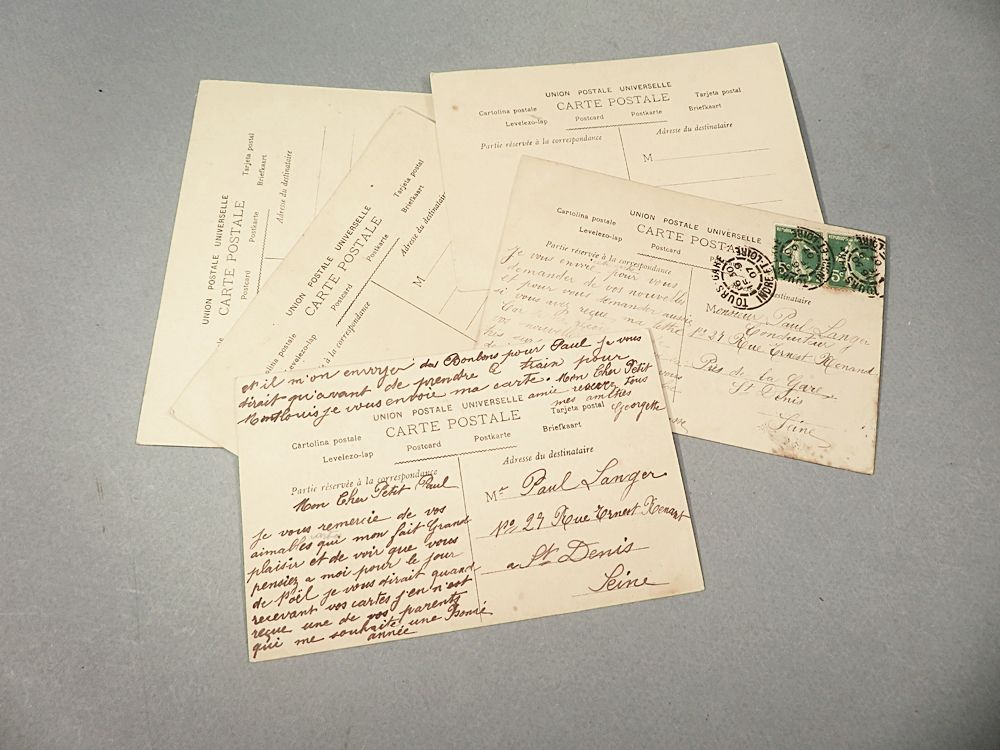 UNION POSTALE UNIVERSELLE
CARTE POSTALE
Tarjeta postal
Postcard
Postkarte
Briefkaart
Adresse du destinataire
UNION POSTALE UNIVERSELLE
CARTE POSTALE
Cartolina postale
Levelezo-lap
Postcard
Postkarte
Tarjeta postal
Briefkaart
Partie réservée à la correspondance
Adresse du destinataire
M
UNION POSTALE UNIVERSELLE
Cartolina postale
CARTE POSTALE
Tarjeta postal
Levelezo-lap
Postcard
Postkarte
Briefkaart
Partie réservée à la correspondance
Adresse du destinataire
M
UNION POSTALE UNIVERSELLE
Cartolina postale
CARTE POSTALE
Levelezo-lap
Postcard
Partie réservée à la
destinataire
TOURS-GARE
INDRE-ET-LOIRE
5c
5c
Je vous envoie pour vous
demander de vos nouvelles
et pour vous demander aussie
si vous avez reçue ma
Monsieur Paul Langer
Conducteur
N° 27 Rue Ernest Renand
Près de la Gare
St Denis
Seine
et il m'on envoyé des Bonbons pour Paul je vous
dirait qu'avant de prendre le train pour
Montlouis je vous envoie ma carte. Mon Cher Petit
amie recevez tous
mes amitiés
Georgette
UNION POSTALE UNIVERSELLE
Cartolina postale
CARTE POSTALE
Tarjeta postal
Levelezo-lap
Postcard
Postkarte
Briefkaart
Partie réservée à la correspondance
Adresse du destinataire
Mon Cher Petit Paul
je vous remercie de vos
aimables qui mon fait Grand
plaisir et de voir que vous
pensiez a moi pour le jour
de Noël je vous dirait quand
recevant vos cartes j'en n'est
reçue une de vos parents
qui me souhaite une Bonne
année
Mr Paul Langer
N° 27 Rue Ernest Renant
a St Denis
Seine